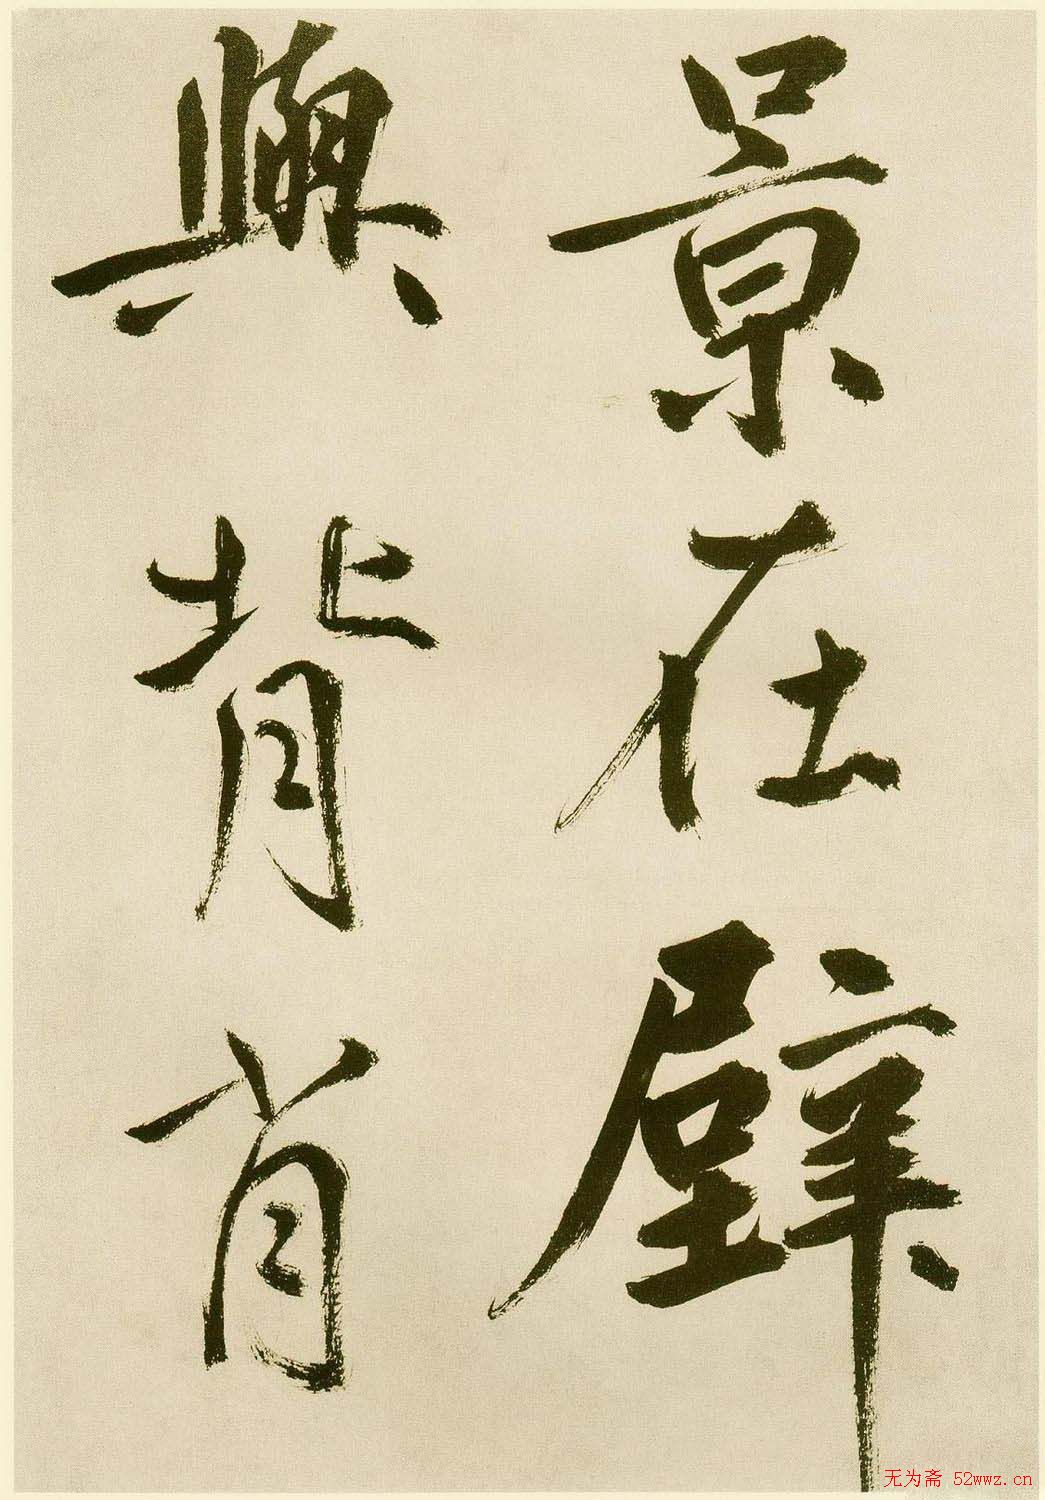 景在壁
興背肖
无为斋 52wwz.cn